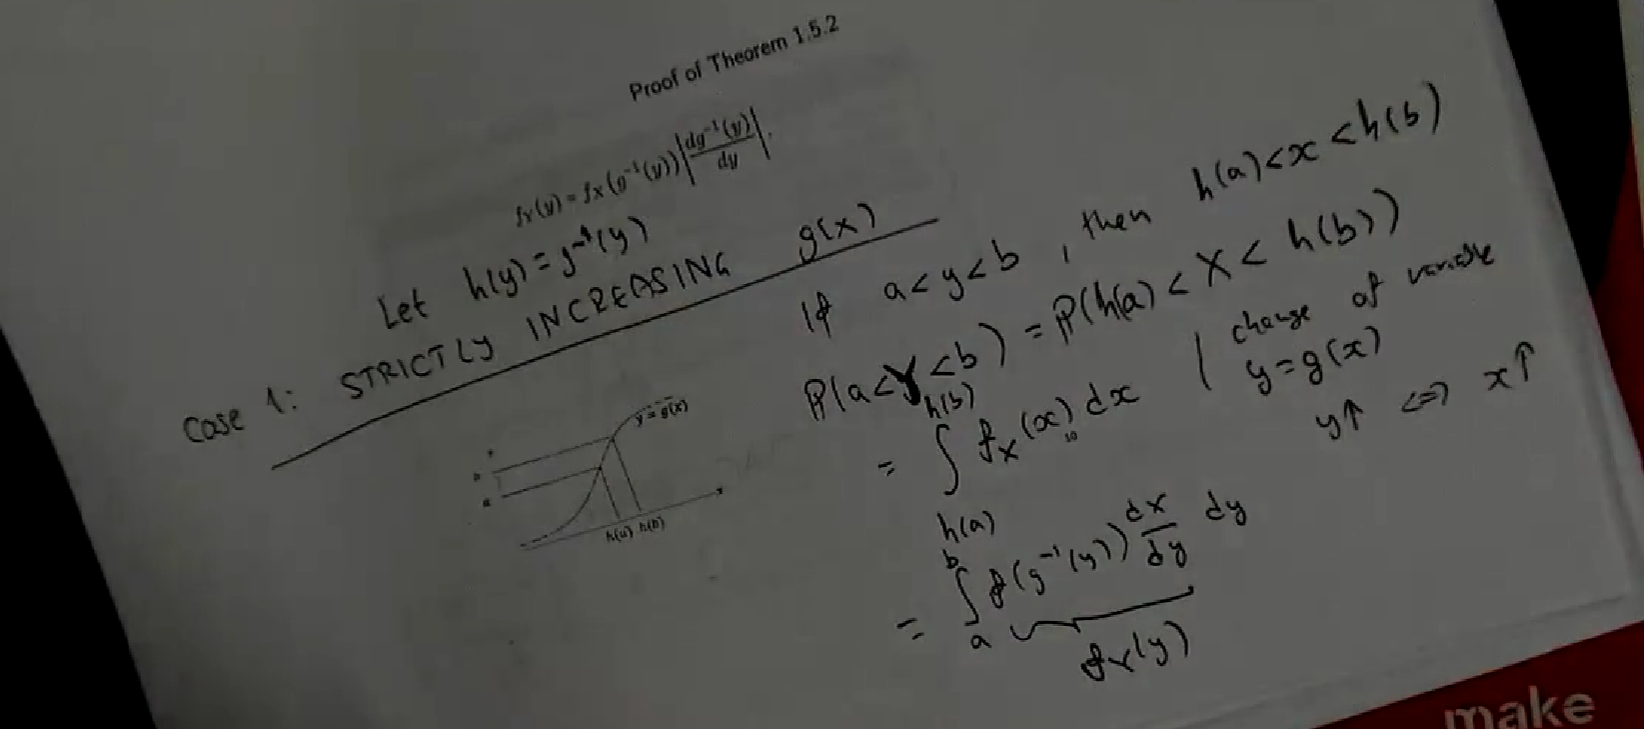 Proof of Theorem 1.5.2
f_Y(y) = f_X(g⁻¹(y)) |dg⁻¹(y)/dy|.
Let h(y) = g⁻¹(y)
Case 1: STRICTLY INCREASING g(x)
y = g(x)
b
a
h(a) h(b)
If a<y<b, then h(a)<x<h(b)
ℙ(a<Y<b) = ℙ(h(a)<X<h(b))
= ∫_{h(a)}^{h(b)} f_X(x) dx | change of variable
y=g(x)
y↑ <=> x↑
= ∫_a^b f(g⁻¹(y)) dx/dy dy
f_Y(y)
make